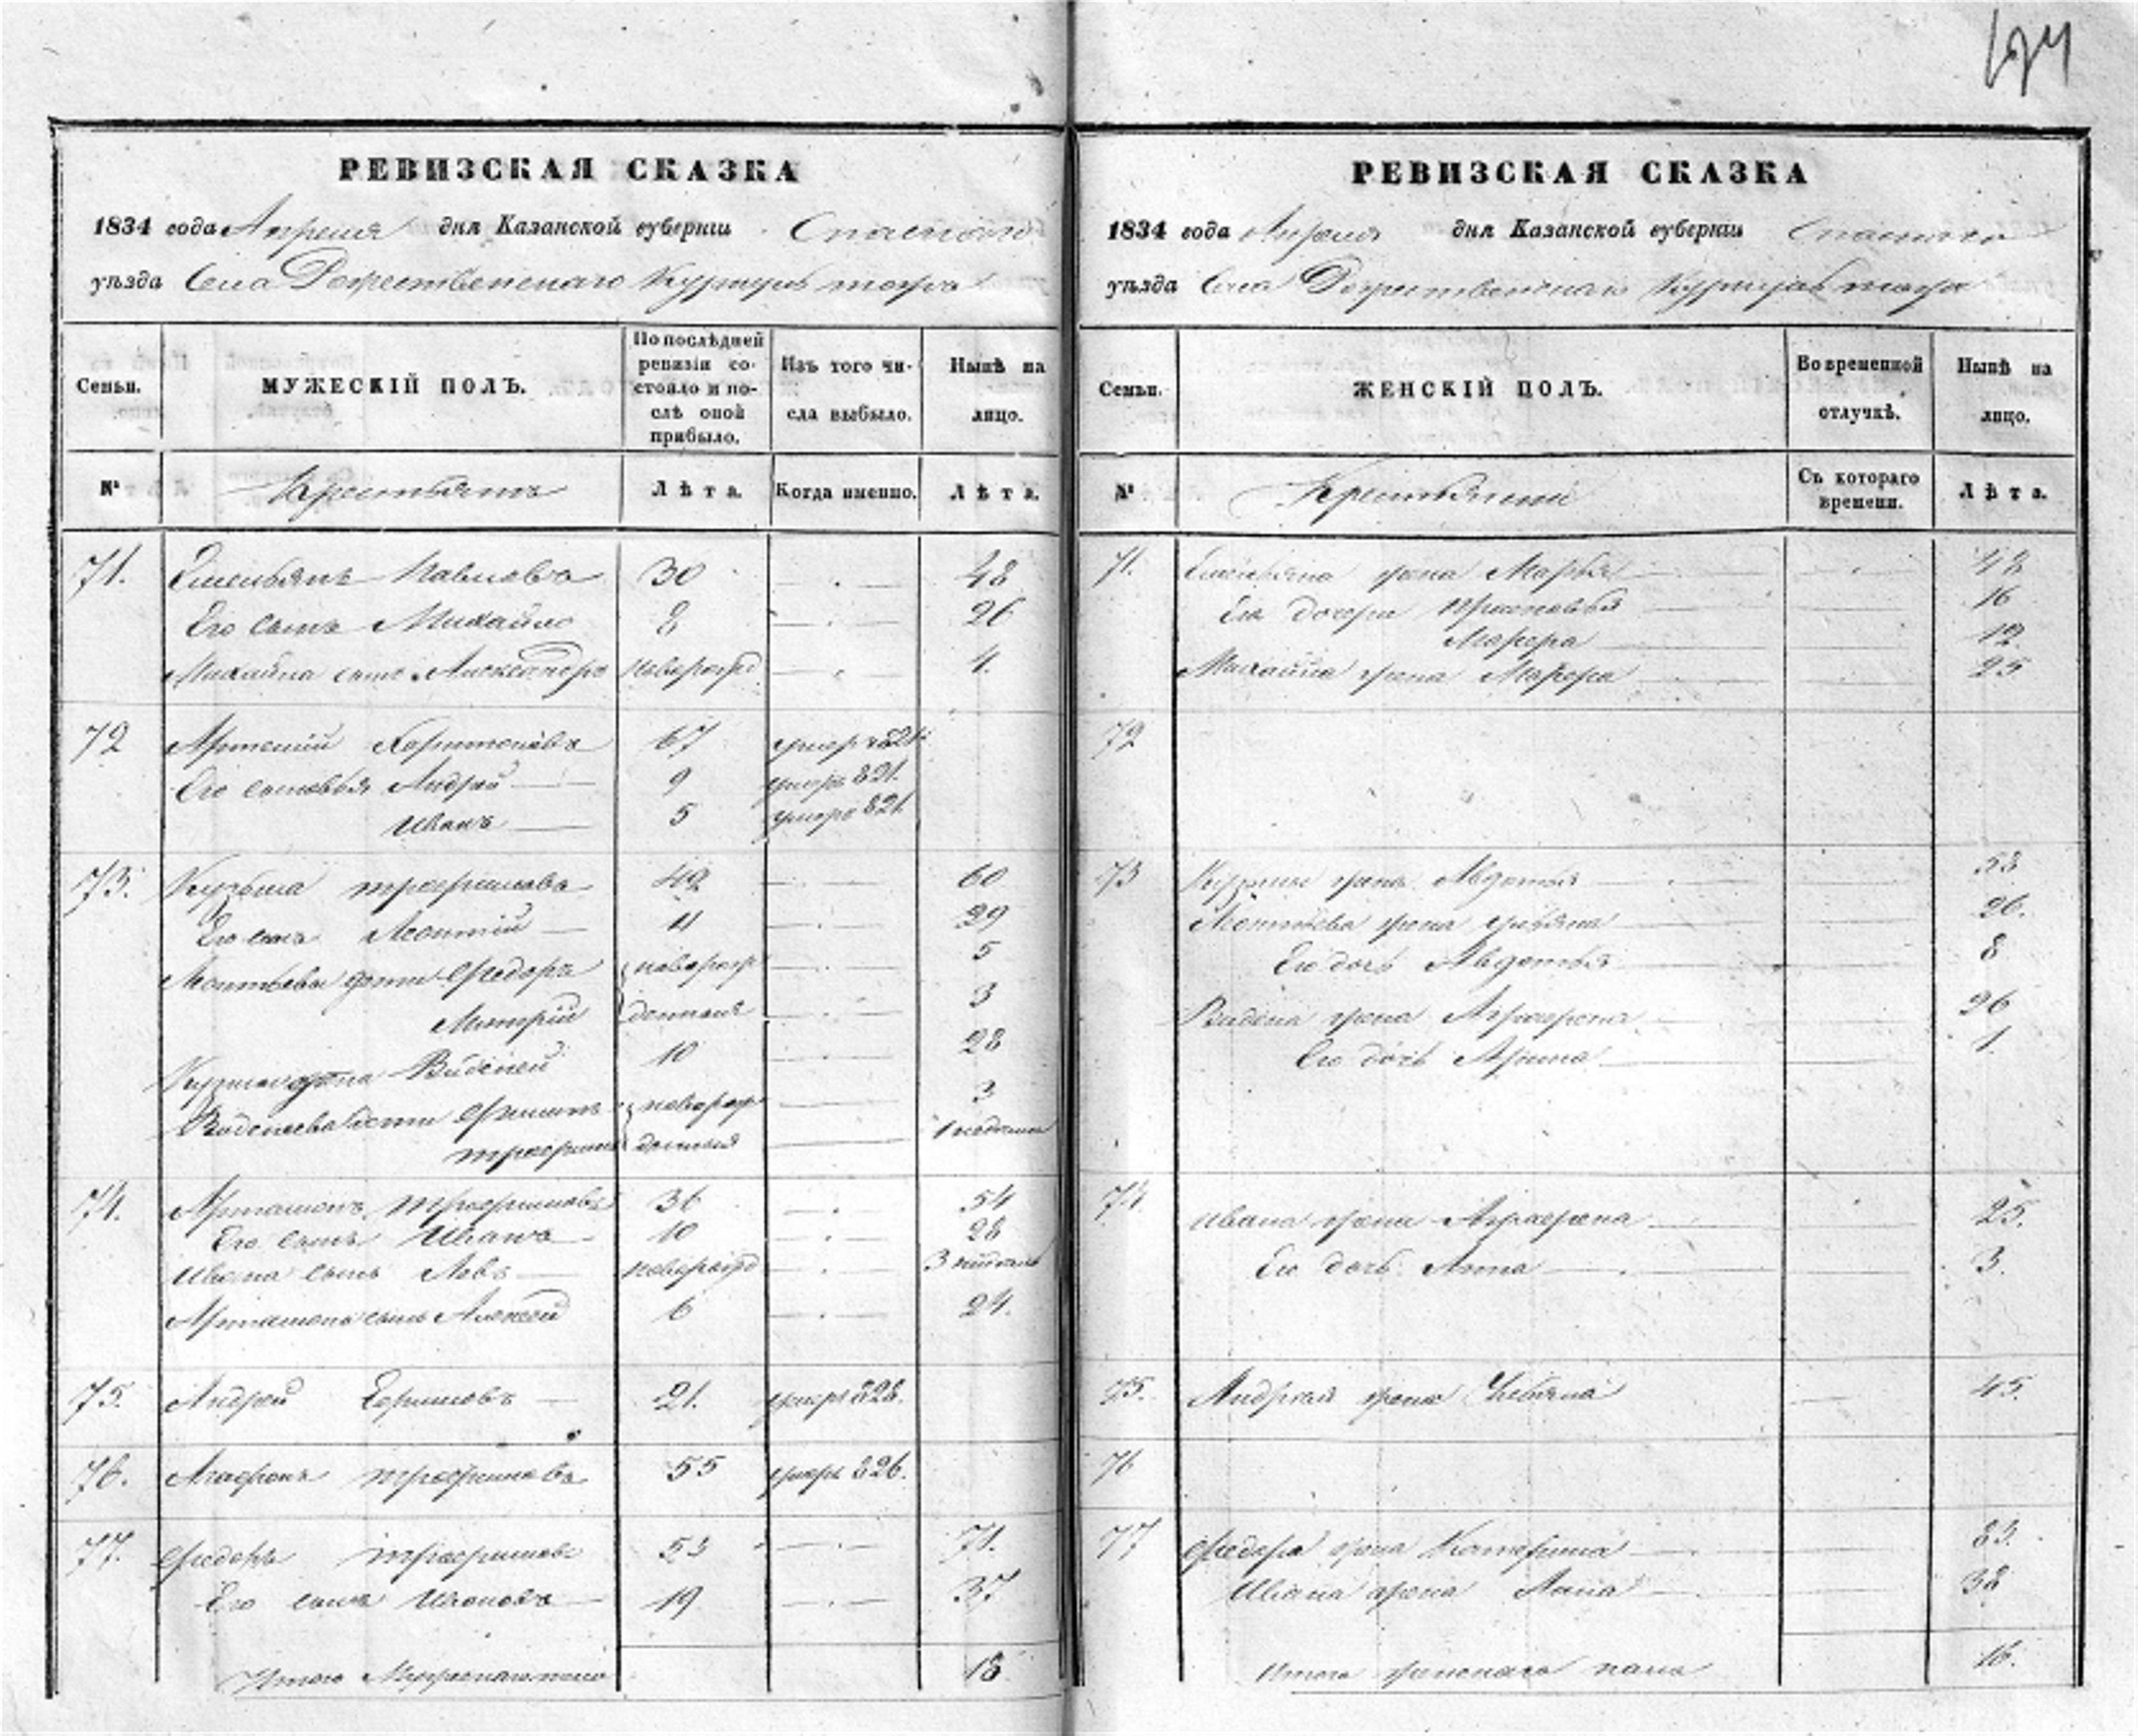 РЕВИЗСКАЯ СКАЗКА
1834 года Апреля дня Казанской губернии Спаскаго
уѣзда Села Рожественскаго тожъ
Семьи. МУЖЕСКІЙ ПОЛЪ. По послѣдней ревизіи состояло и послѣ оной прибыло. Изъ того числа выбыло. Нынѣ на лицо.
№ Крестьянъ Лѣта. Когда именно. Лѣта.
71. Емельянъ Павловъ 30 48
Его сынъ Михайло 8 26
Михайла сынъ Александръ новорожд 4.
72 Артемій Харитоновъ 67 умеръ 821
Его сыновья Андрей 9 умеръ 821.
Иванъ 5 умеръ 821
73. Кузьма Трофимовъ 42 60
Его сынъ Леонтій 11 29
Леонтьевы дети Федоръ новорож 5
Митрій денныя 3
10 28
дети новорож 3
Трофимъ денныя 1 недели
74. Артамонъ Трофимовъ 36 54
Его сынъ Иванъ 10 28
Ивана сынъ Левъ новорожд 3 недели
Артамона сынъ Алексей 6 24.
75. Андрей Ефимовъ 21. умеръ 828.
76. Агафонъ Трофимовъ 55 умеръ 826.
77. Федоръ Трофимовъ 53 71.
Его сынъ Иванъ 19 37
Итого Мужескаго пола 13
РЕВИЗСКАЯ СКАЗКА
1834 года Апреля дня Казанской губернии Спаскаго
уѣзда Села Рожественскаго тожъ
Семьи. ЖЕНСКІЙ ПОЛЪ. Во временной отлучкѣ. Нынѣ на лицо.
№ Крестьянки Съ котораго времени. Лѣта.
71. Емельяна жена Марья 48
Его дочери Прасковья 16
Марфа 12.
Михайла жена Марфа 25
72
73 Кузмы жена Авдотья 53
Леонтьева жена Ульяна 26.
Его дочь Авдотья 8
жена Аграфена 26
Его дочь Арина 1.
74 Ивана жена Аграфена 25.
Его дочь Анна 3.
75. Андрея жена Ульяна 45.
76
77 Федора жена Катерина
Ивана жена Анна 38
Итого женскаго пола 16.